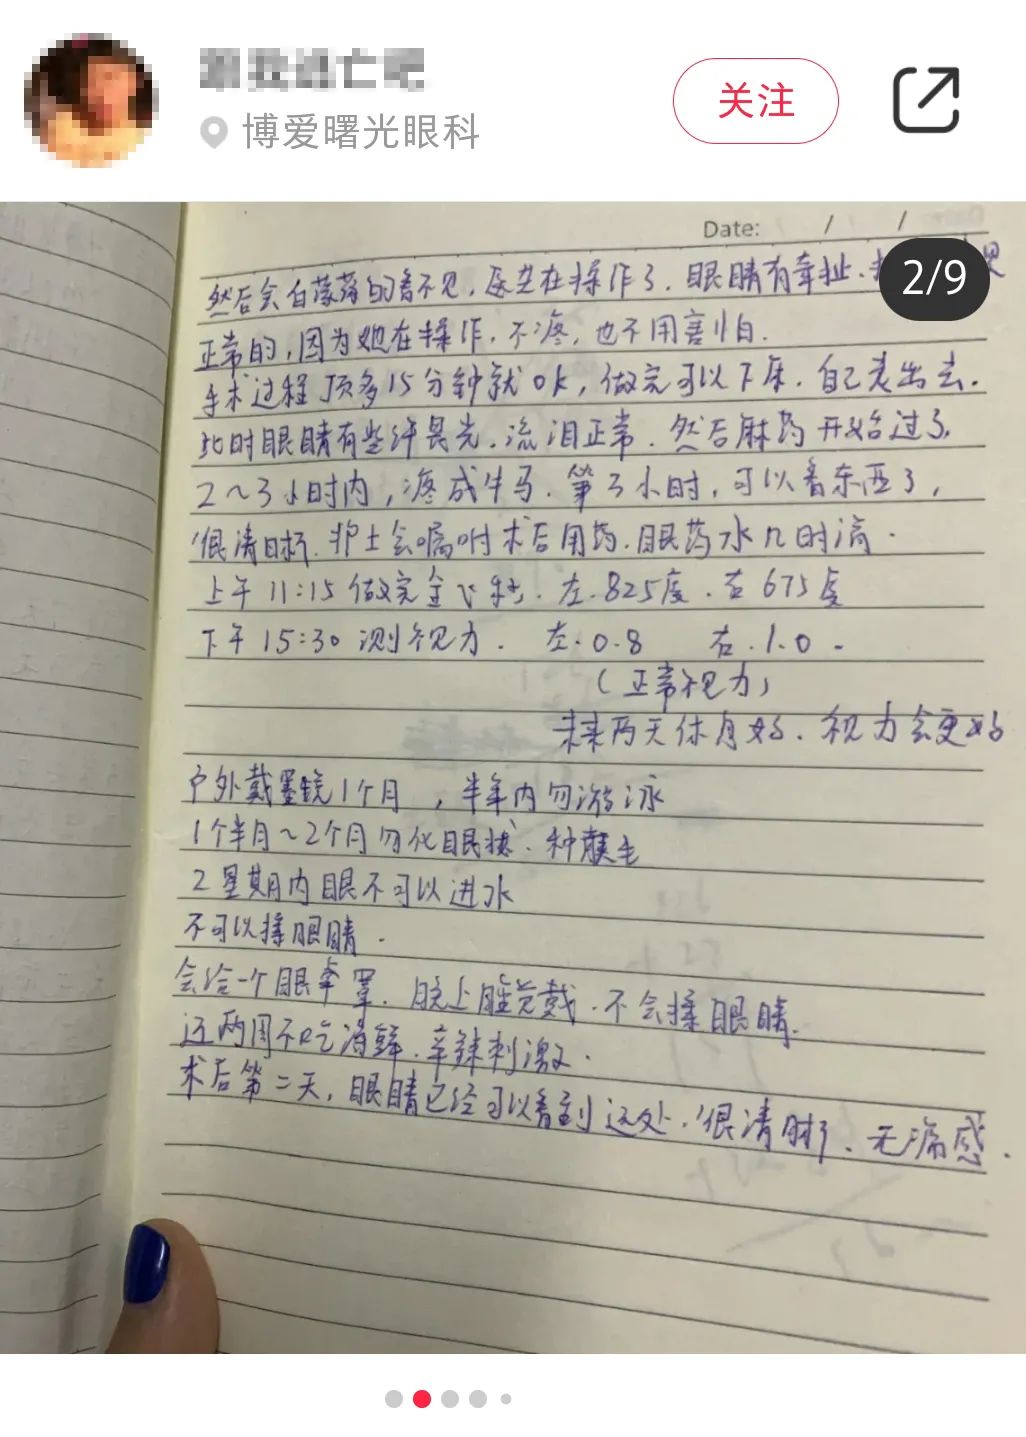 博爱曙光眼科
关注
Date: / /
2/9
然后会白蒙蒙的看不见,医生在操作了,眼睛有牵扯.
正常的,因为她在操作.不疼,也不用害怕.
手术过程顶多15分钟就ok,做完可以下床.自己走出去.
此时眼睛有些许畏光.流泪正常.然后麻药开始过了,
2~3小时内,疼成牛马.第3小时,可以看东西了,
很清晰.护士会嘱咐术后用药.眼药水几时滴.
上午11:15做完全飞秒.左.825度.右675度
下午15:30测视力.左.0.8 右.1.0.
(正常视力)
未来两天休息好.视力会更好
户外戴墨镜1个月,半年内勿游泳
1个半月~2个月勿化眼妆.种睫毛
2星期内眼不可以进水
不可以揉眼睛.
会给一个眼罩.晚上睡觉戴.不会揉眼睛.
这两周不吃海鲜.辛辣刺激.
术后第二天,眼睛已经可以看到远处.很清晰了.无痛感.